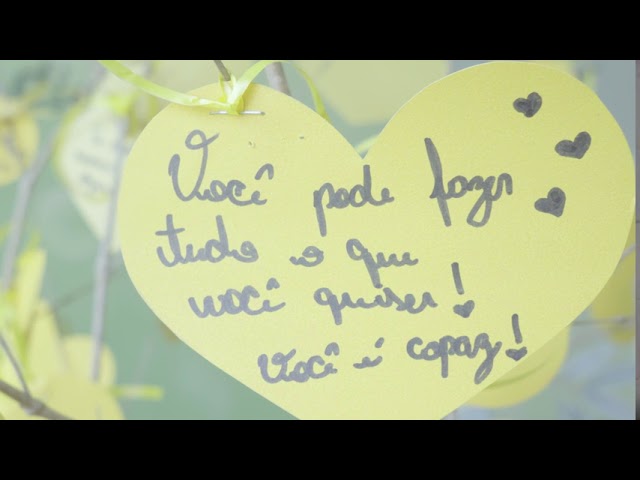 Você pode fazer
tudo o que
você quiser!
Você é capaz!